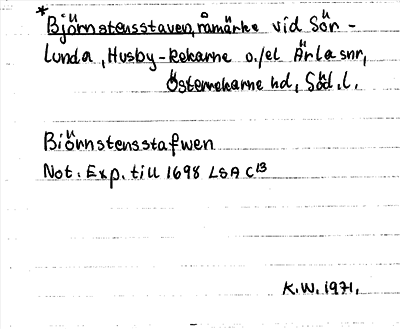 *Björnstensstaven, råmärke vid Sör-
lunda, Husby-Rekarne o./el Ärla snr,
Österrekarne hd, Söd. l.
Biörnstensstafwen
Not. Exp. till 1698 LSA C13
K.W. 1971.